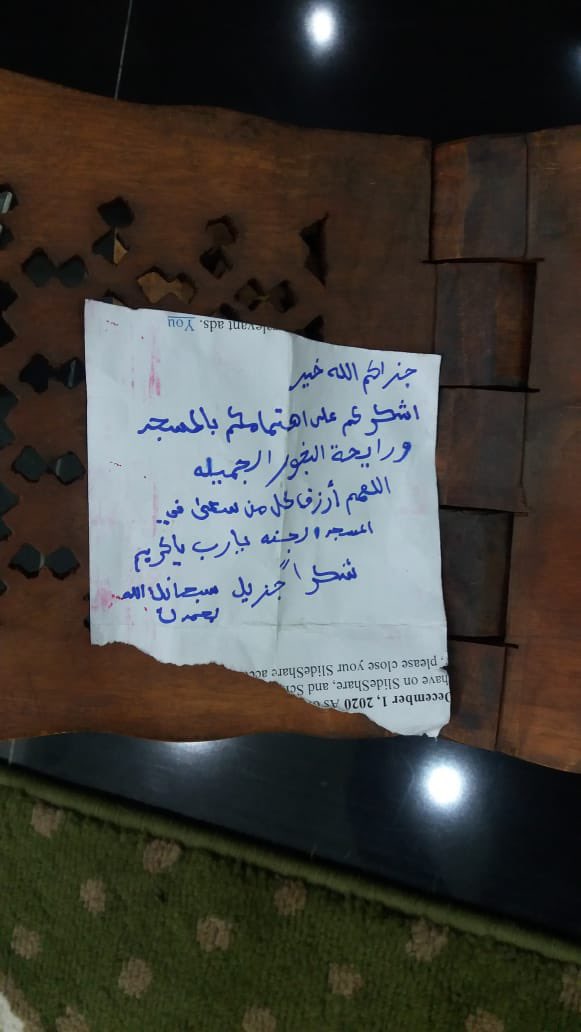 جزاكم الله خير
اشكركم على اهتمامكم بالمسجد
ورايحة البخور الجميله
اللهم أرزق كل من سعى في
المسجد الجنه يارب ياكريم
شكراً جزيل سبحانك اللهم
بحمدك
relevant ads. You
December 1, 2020 As of
have on SlideShare, and
, please close your SlideShare acc